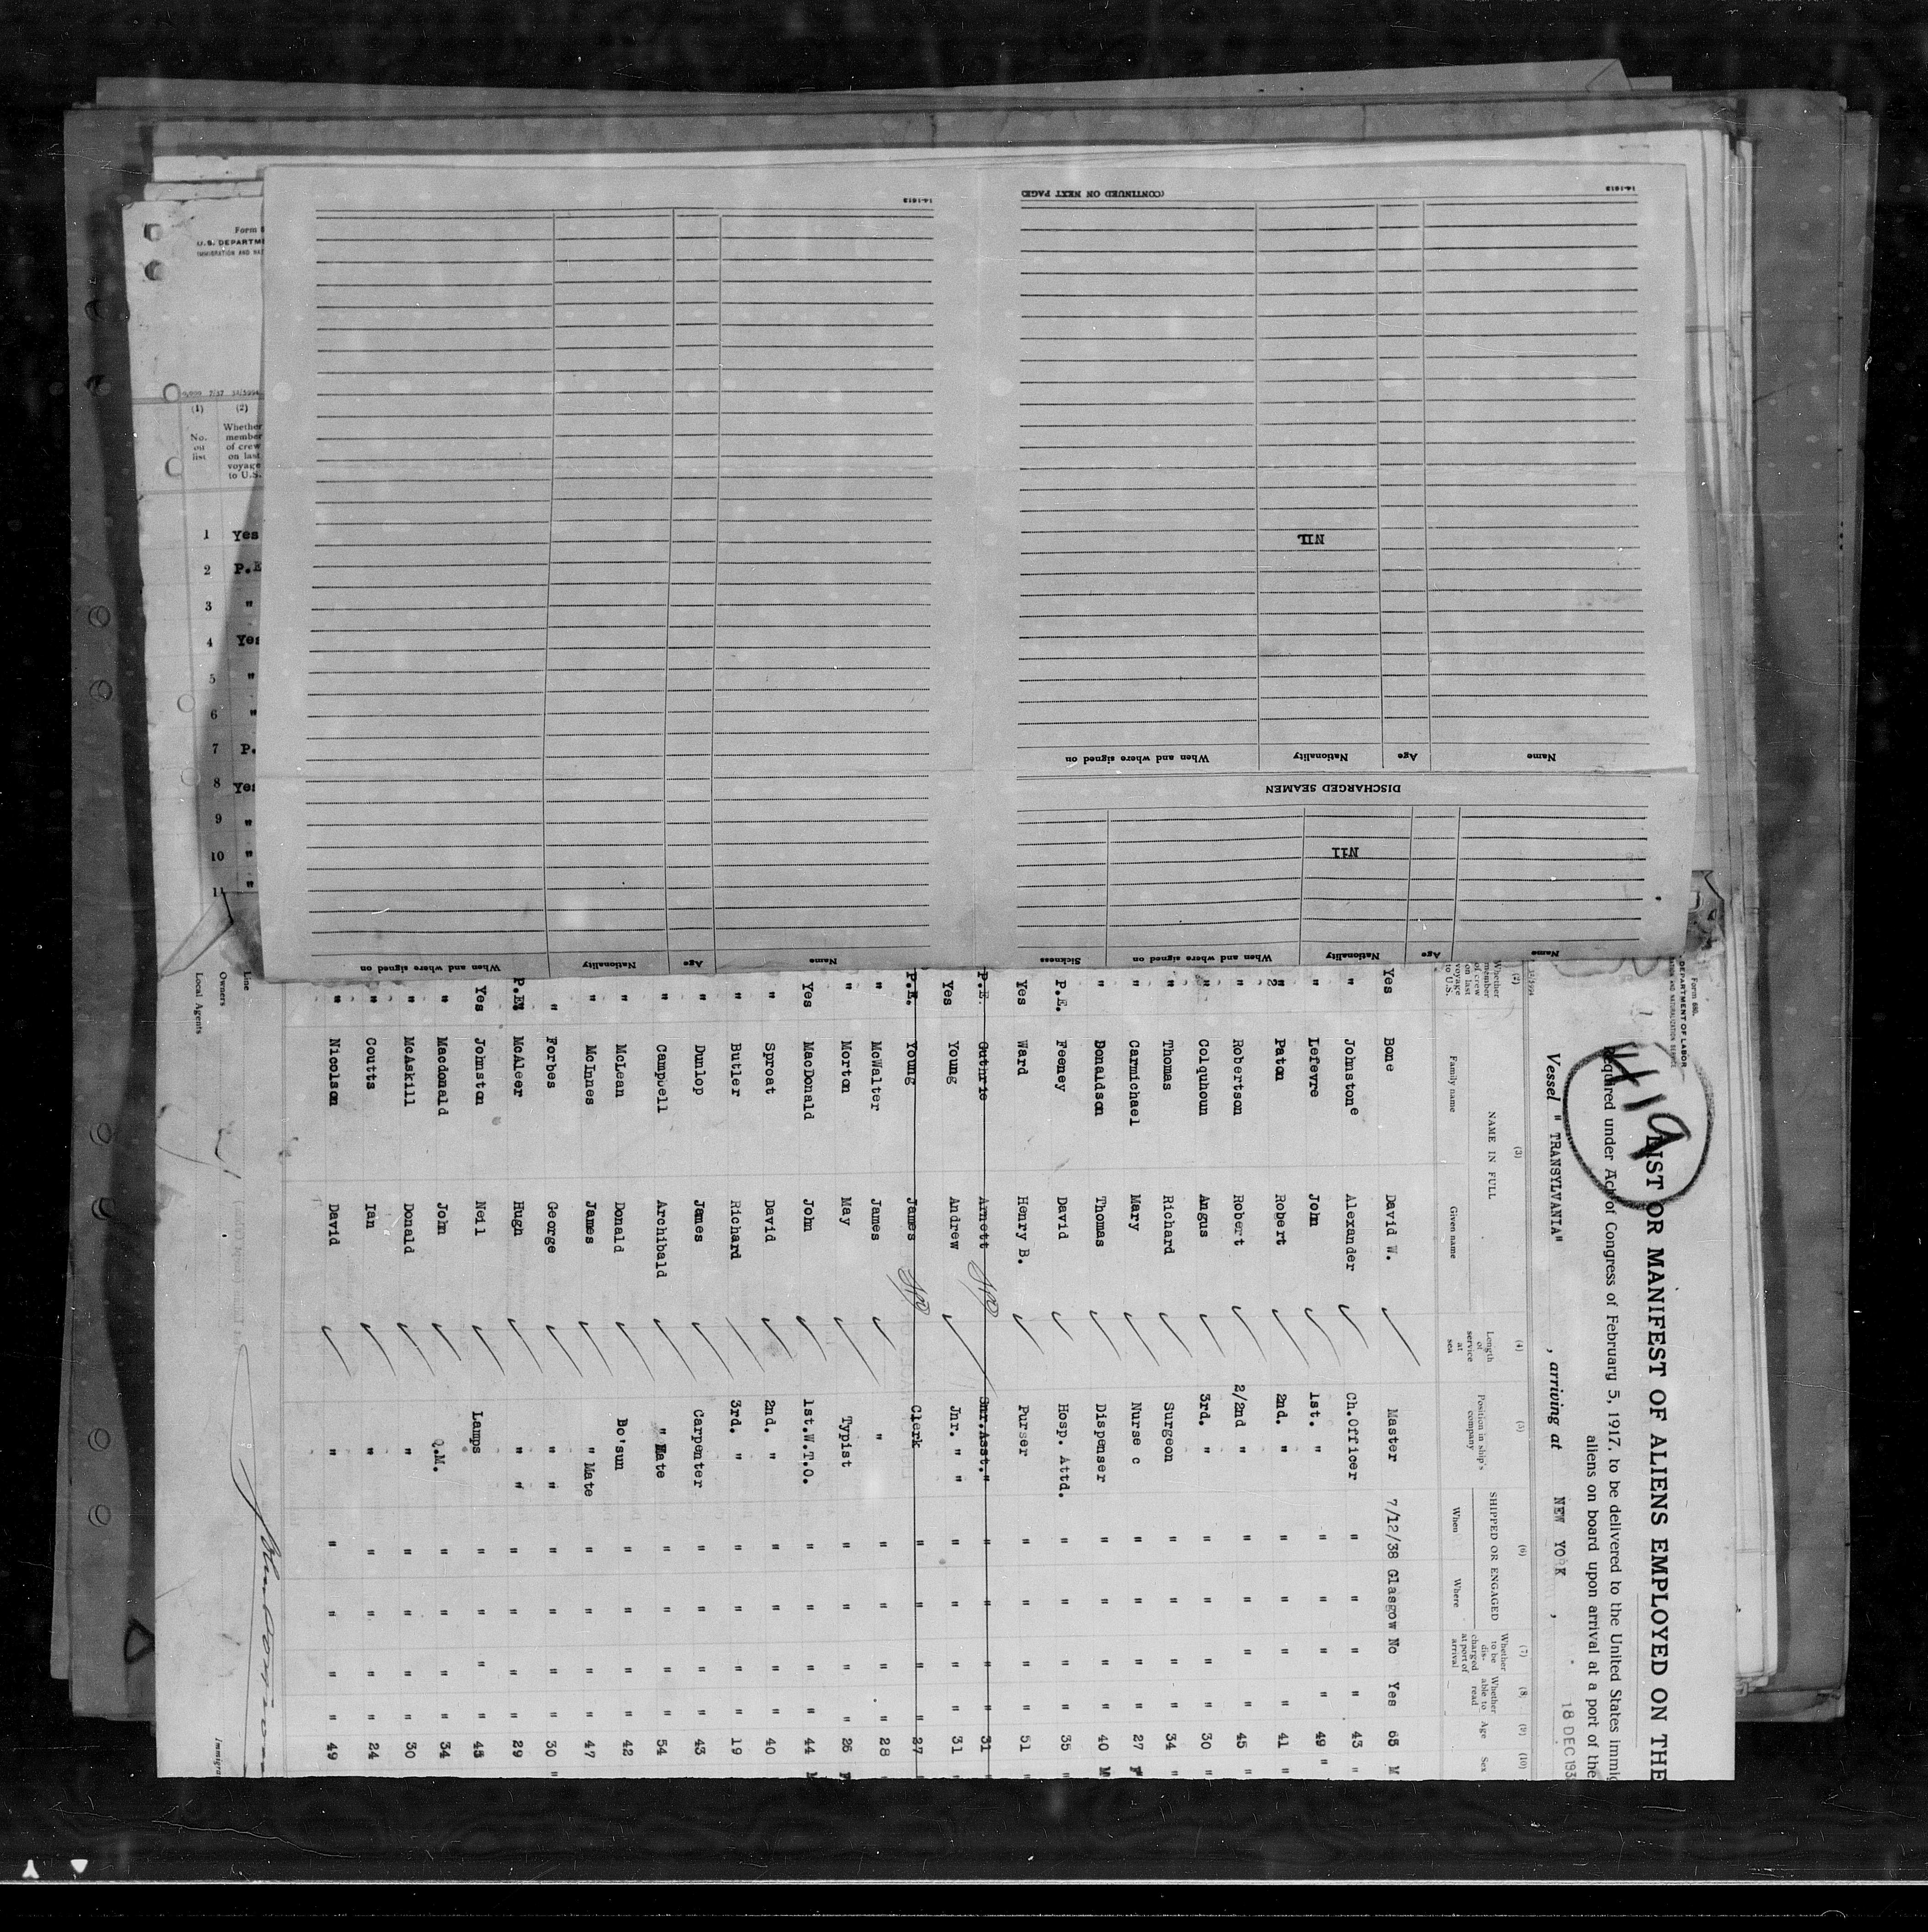 14-1613
(CONTINUED ON NEXT PAGE)
14-1613
NIL
Name
Age
Nationality
When and where signed on
DISCHARGED SEAMEN
Nil
Name
Age
Nationality
When and where signed on
Sickness
Name
Age
Nationality
When and where signed on
Form 6
U.S. DEPARTME
IMMIGRATION AND NAT
(1) (2)
No. on list
Whether member of crew on last voyage to U.S.
1 Yes
2 P.E
3 "
4 Yes
5 "
6 "
7 P.
8 Yes
9 "
10 "
11 "
Form 680
DEPARTMENT OF LABOR
419
LIST OR MANIFEST OF ALIENS EMPLOYED ON THE
Required under Act of Congress of February 5, 1917, to be delivered to the United States immig
aliens on board upon arrival at a port of the
Vessel "TRANSYLVANIA" , arriving at NEW YORK ,
18 DEC 193
(2) (3) (4) (5) (6) (7) (8) (9) (10)
Whether member of crew on last voyage to U.S.
NAME IN FULL
Family name Given name
Length of service at sea
Position in ship's company
SHIPPED OR ENGAGED
When Where
Whether to be discharged at port of arrival
Whether able to read
Age Sex
Yes Bone David W. Master 7/12/38 Glasgow No Yes 65 M
" Johnstone Alexander Ch.Officer " " " " 43 "
" Lefevre John 1st. " " " " " 49 "
" Paton Robert 2nd. " " " " " 41 "
" Robertson Robert 2/2nd " " " " " 45 "
" Colquhoun Angus 3rd. " " " " " 30 "
" Thomas Richard Surgeon " " " " 34 "
" Carmichael Mary Nurse c " " " " 27 F
" Donaldson Thomas Dispenser " " " " 40 M
P.E. Feeney David Hosp. Attd. " " " " 35 "
Yes Ward Henry B. Purser " " " " 51 "
P.E. Guthrie Arnett Snr.Asst." " " " " 31 "
Yes Young Andrew Jnr. " " " " " " 31 "
P.E. Young James Clerk " " " " 27 "
" McWalter James " " " " " 28 "
" Morton May Typist " " " " 26 F
Yes MacDonald John 1st.W.T.O. " " " " 44 M
" Sproat David 2nd. " " " " " 40
" Butler Richard 3rd. " " " " " 19
" Dunlop James Carpenter " " " " 43
" Campbell Archibald " Mate " " " " 54
" McLean Donald Bo'sun " " " " 42
" McInnes James " Mate " " " " 47
" Forbes George " " " " " " 30 "
P.E. McAleer Hugh " " " " " " 29
Yes Johnston Neil Lamps " " " " 45
" Macdonald John Q.M. " " " " 34
" McAskill Donald " " " " " 30
" Coutts Ian " " " " " 24
" Nicolson David " " " " " 49
Line
Owners
Local Agents
Immigra